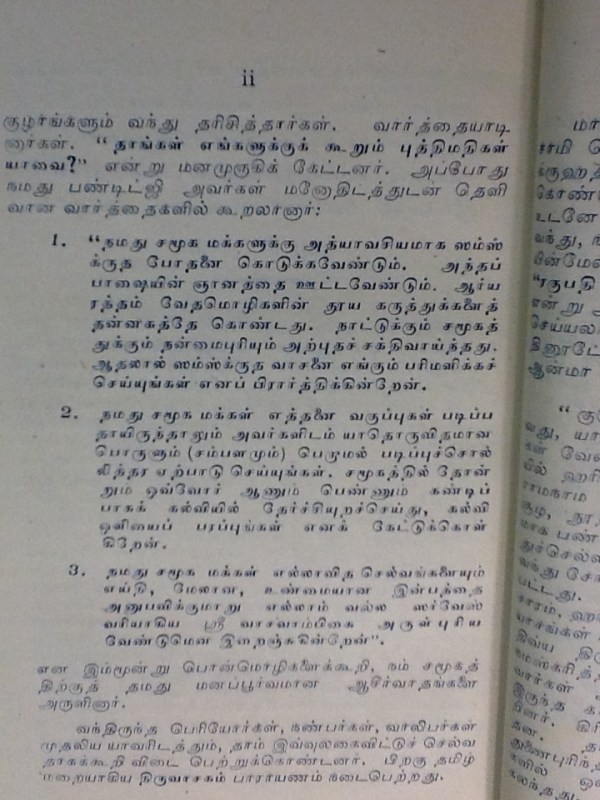 ii
குழாங்களும் வந்து தரிசித்தார்கள். வார்த்தையாடி
னார்கள். "தாங்கள் எங்களுக்குக் கூறும் புத்திமதிகள்
யாவை?" என்று மனமுருகிக் கேட்டனர். அப்போது
நமது பண்டிட்ஜி அவர்கள் மனோதிடத்துடன் தெளி
வான வார்த்தைகளில் கூறலானார்:
1. "நமது சமூக மக்களுக்கு அத்யாவசியமாக ஸம்ஸ்
க்ருத போதனை கொடுக்கவேண்டும். அந்தப்
பாஷையின் ஞானத்தை ஊட்டவேண்டும். ஆர்ய
ரத்தம் வேதமொழிகளின் தூய கருத்துக்களைத்
தன்னகத்தே கொண்டது. நாட்டுக்கும் சமூகத்
துக்கும் நன்மைபுரியும் அற்புதச் சக்திவாய்ந்தது.
ஆதலால் ஸம்ஸ்க்ருத வாசனை எங்கும் பரிமளிக்கச்
செய்யுங்கள் எனப் பிரார்த்திக்கின்றேன்.
2. நமது சமூக மக்கள் எத்தனை வகுப்புகள் படிப்ப
தாயிருந்தாலும் அவர்களிடம் யாதொருவிதமான
பொருளும் (சம்பளமும்) பெறாமல் படிப்புச்சொல்
லித்தர ஏற்பாடு செய்யுங்கள். சமூகத்தில் தோன்
றும் ஒவ்வோர் ஆணும் பெண்ணும் கண்டிப்
பாகக் கல்வியில் தேர்ச்சியுறச்செய்து, கல்வி
ஒளியைப் பரப்புங்கள் எனக் கேட்டுக்கொள்
கிறேன்.
3. நமது சமூக மக்கள் எல்லாவித செல்வங்களையும்
எய்தி, மேலான, உண்மையான இன்பத்தை
அனுபவிக்குமாறு எல்லாம் வல்ல ஸர்வேஸ்
வரியாகிய ஸ்ரீ வாசவாம்பிகை அருள்புரிய
வேண்டுமென இறைஞ்சுகின்றேன்".
என இம்மூன்று பொன்மொழிகளைக்கூறி, நம் சமூகத்
திற்குத் தமது மனப்பூர்வமான ஆசீர்வாதங்களை
அருளினார்.
வந்திருந்த பெரியோர்கள், நண்பர்கள், வாலிபர்கள்
முதலிய யாவரிடத்தும், தாம் இவ்வுலகைவிட்டுச் செல்வ
தாகக்கூறி விடை பெற்றுக்கொண்டனர். பிறகு தமிழ்
மறையாகிய திருவாசகம் பாராயணம் நடைபெற்றது.